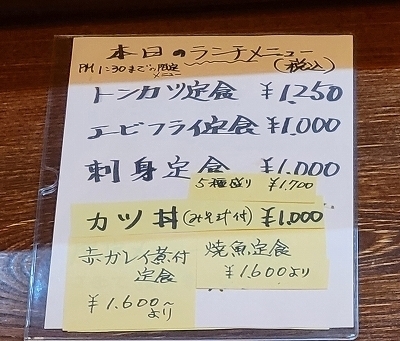 本日のランチメニュー
PM 1:30までの限定メニュー
(税込)
トンカツ定食 ¥1,250
エビフライ定食 ¥1,000
刺身定食 ¥1,000
5種盛り ¥1,700
カツ丼(みそ汁付) ¥1,000
赤ガレイ煮付定食
¥1,600～より
焼魚定食
¥1,600より